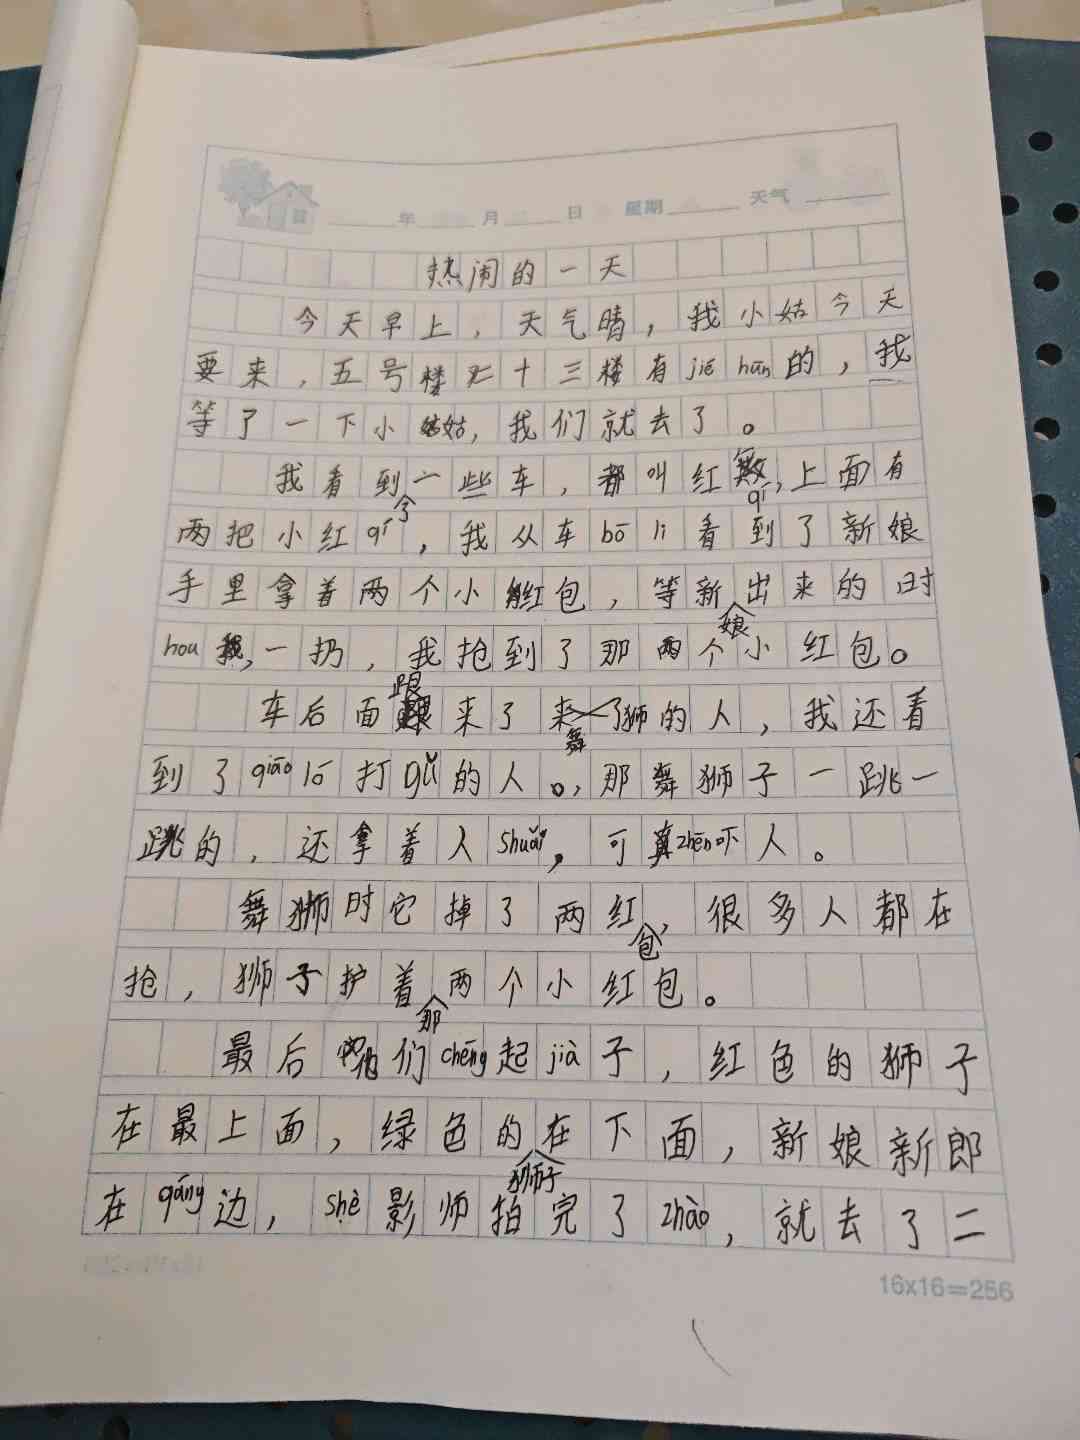 年 月 日 星期 天气
热闹的一天
今天早上，天气晴，我小姑今天
要来，五号楼二十三楼有jiē hūn的，我
等了一下小姑，我们就去了。
我看到了一些车，都叫红qí，上面有
两把小红qí，我从车bō li看到了新娘
手里拿着两个小红包，等新娘出来的时
hou，一扔，我抢到了那两个小红包。
车后面跟来了舞狮的人，我还看
到了qiāo ló打gǔ的人。那舞狮子一跳一
跳的，还拿着人shuǎi，可真zhēn吓人。
舞狮时它掉了两红包，很多人都在
抢，狮子护着那两个小红包。
最后他们chēng起jià子，红色的狮子
在最上面，绿色的狮子在下面，新娘新郎
在qáng边，shè影师拍完了zhào，就去了二
16x16=256